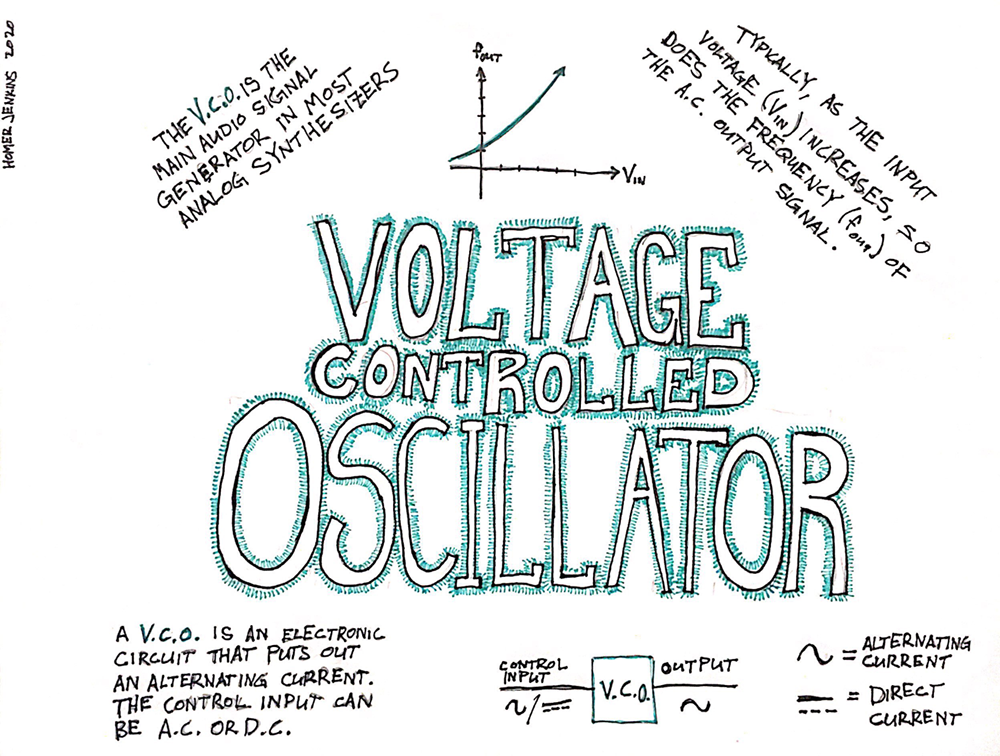 HOMER JENKINS 2020
THE V.C.O. IS THE
MAIN AUDIO SIGNAL
GENERATOR IN MOST
ANALOG SYNTHESIZERS
fOUT
VIN
TYPICALLY, AS THE INPUT
VOLTAGE (VIN) INCREASES, SO
DOES THE FREQUENCY (fOUT) OF
THE A.C. OUTPUT SIGNAL.
VOLTAGE
CONTROLLED
OSCILLATOR
A V.C.O. IS AN ELECTRONIC
CIRCUIT THAT PUTS OUT
AN ALTERNATING CURRENT.
THE CONTROL INPUT CAN
BE A.C. OR D.C.
CONTROL
INPUT
V.C.O.
OUTPUT
= ALTERNATING
CURRENT
= DIRECT
CURRENT